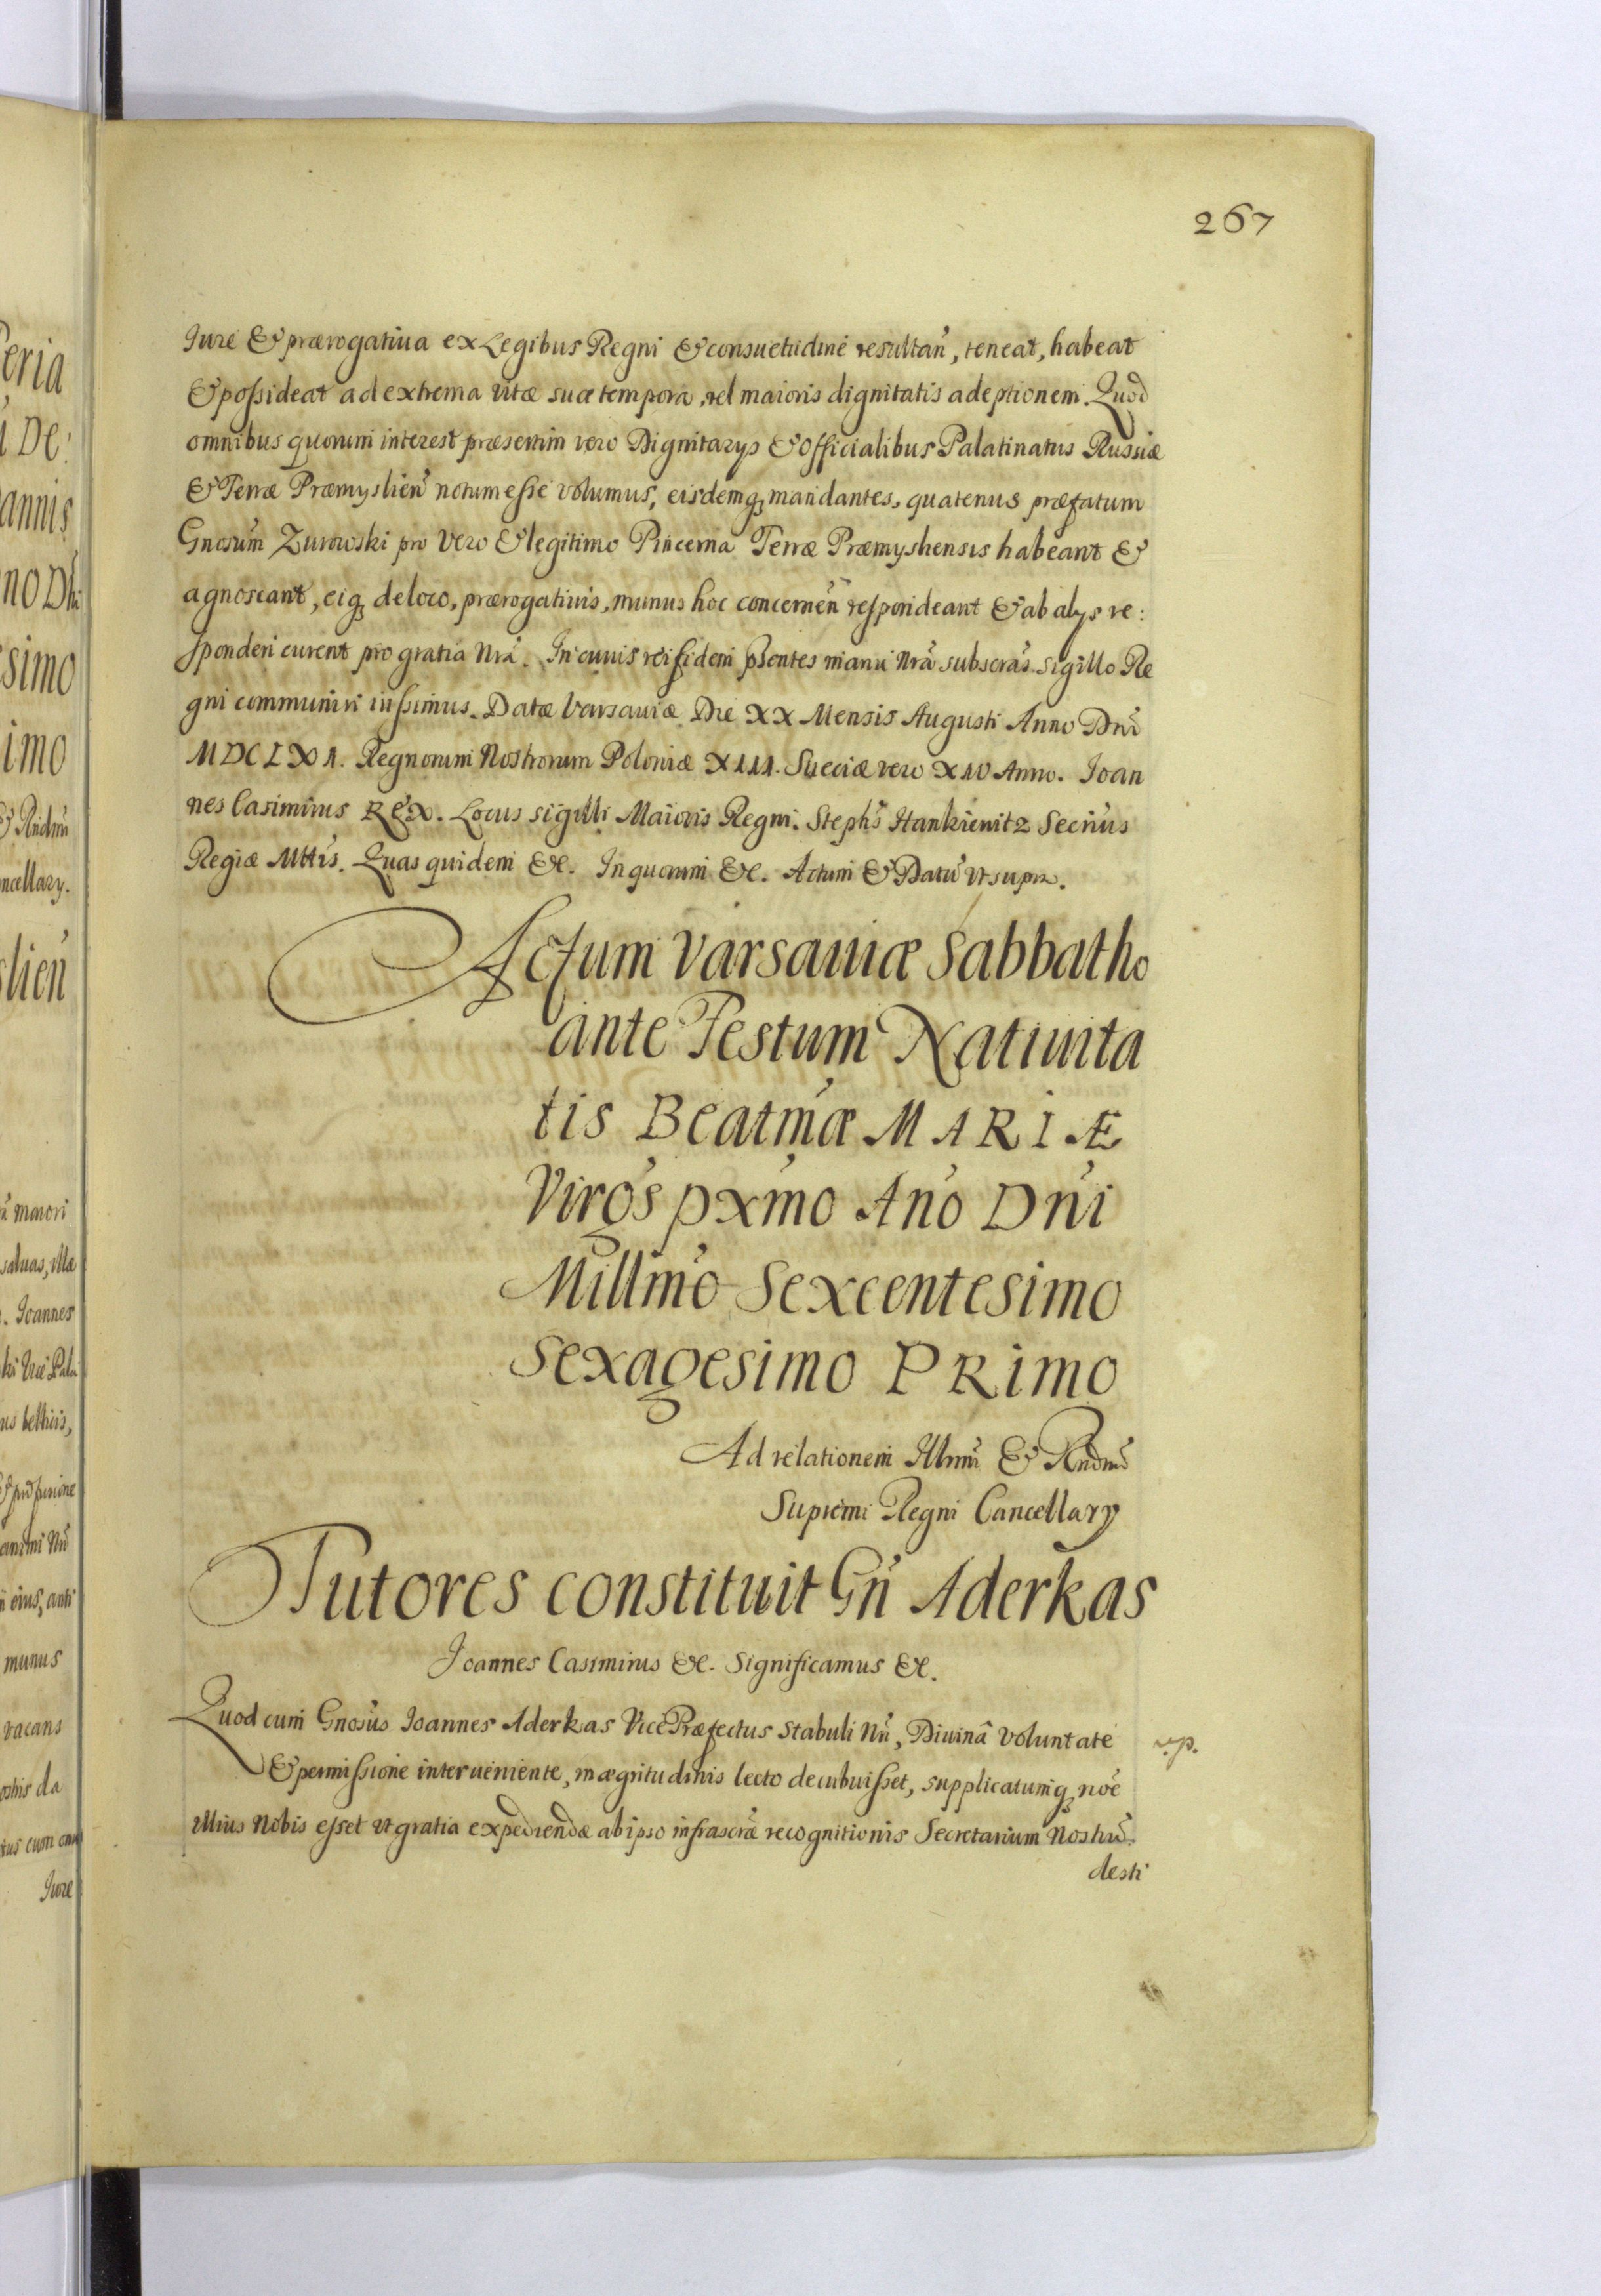 267
Iure & prærogatiua ex Legibus Regni & consuetudine resultan̄, teneat, habeat
& possideat ad extrema vitæ suæ tempora, vel maioris dignitatis adeptionem. Quod
omnibus quorum interest præsertim vero Dignitarys & Officialibus Palatinatus Russiæ
& Terræ Præmyslien̄ notum esse volumus, eisdemq₃ mandantes, quatenus præfatum
Gnosum̄ Zurowski pro vero & legitimo Pincerna Terræ Præmysliensis habeant &
agnoscant, eiq₃ de loco, prærogatiuis, munus hoc concernen̄ respondeant & ab alys re:
sponderi curent pro gratia Nrā. In cuius rei fidem pn̄tes manu Nrā subscrās sigillo Re
gni communiri iussimus. Datæ Varsauiæ Die XX Mensis Augusti Anno Dnī
MDCLXI. Regnorum Nostrorum Poloniæ XIII. Sueciæ vero XIV Anno. Ioan
nes Casimirus REX. Locus sigilli Maioris Regni. Stephs̄ Hankiewitz Secriūs
Regiæ Mttīs. Quas quidem &c. In quorum &c. Actum & Datū vt supra.
Actum Varsauiæ Sabbatho
ante Festum Natiuita
tis Beatm̄æ MARIÆ
Virgs̄ pxm̄o An̄o Dn̄i
Millm̄o Sexcentesimo
Sexagesimo PRimo
Ad relationem Illmī & Rndmī
Supremi Regni Cancellary
Tutores constituit Gn̄ Aderkas
Joannes Casimirus &c. Significamus &c.
Quod cum Gnosūs Ioannes Aderkas VicePræfectus Stabuli Nrī, Diuinâ Voluntate
& permissione interueniente, in ægritudinis lecto decubuisset, supplicatumq₃ noē
illius Nobis esset vt gratia expediendæ ab ipso infrascrǣ recognitionis Secretarium Nostrū
desti